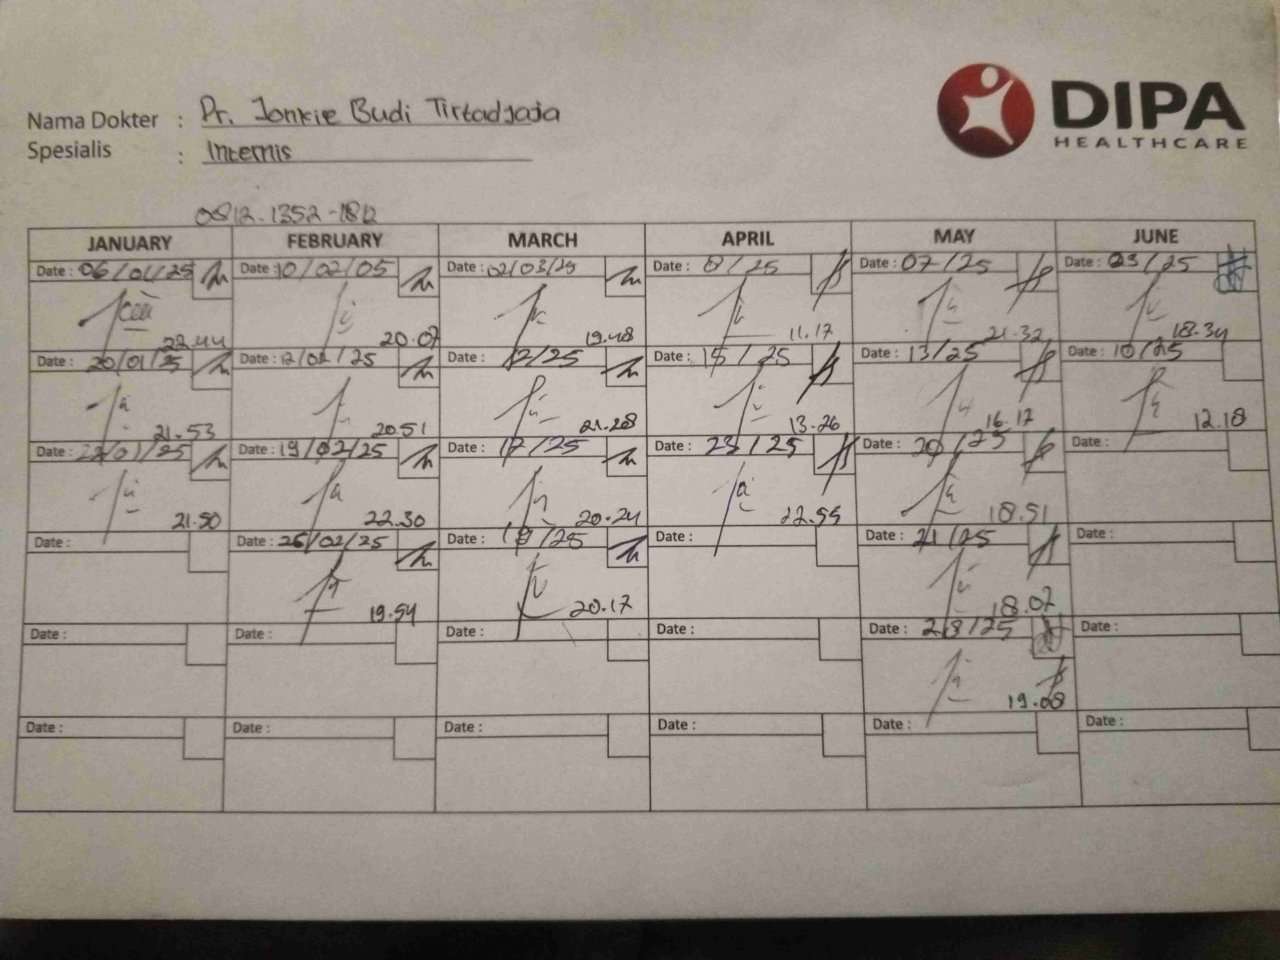 DIPA
HEALTHCARE
Nama Dokter : Dr. Jonkie Budi Tirtadjaja
Spesialis : Internis
0812-1352-1812
JANUARY FEBRUARY MARCH APRIL MAY JUNE
Date : 06/01/25 Date : 10/02/05 Date : 02/03/25 Date : 8/25 Date : 07/25 Date : 03/25
22.44 20.07 19.48 11.17 21.32 18.34
Date : 20/01/25 Date : 12/02/25 Date : 12/25 Date : 15/25 Date : 13/25 Date : 10/25
21.53 20.51 21.28 13.26 16.12 12.18
Date : 22/01/25 Date : 19/02/25 Date : 17/25 Date : 23/25 Date : 20/25 Date :
21.50 22.30 20.24 22.55 18.51
Date : Date : 26/02/25 Date : 19/25 Date : Date : 21/25 Date :
19.54 20.17 18.07
Date : Date : Date : Date : Date : 28/25 Date :
19.08
Date : Date : Date : Date : Date : Date :